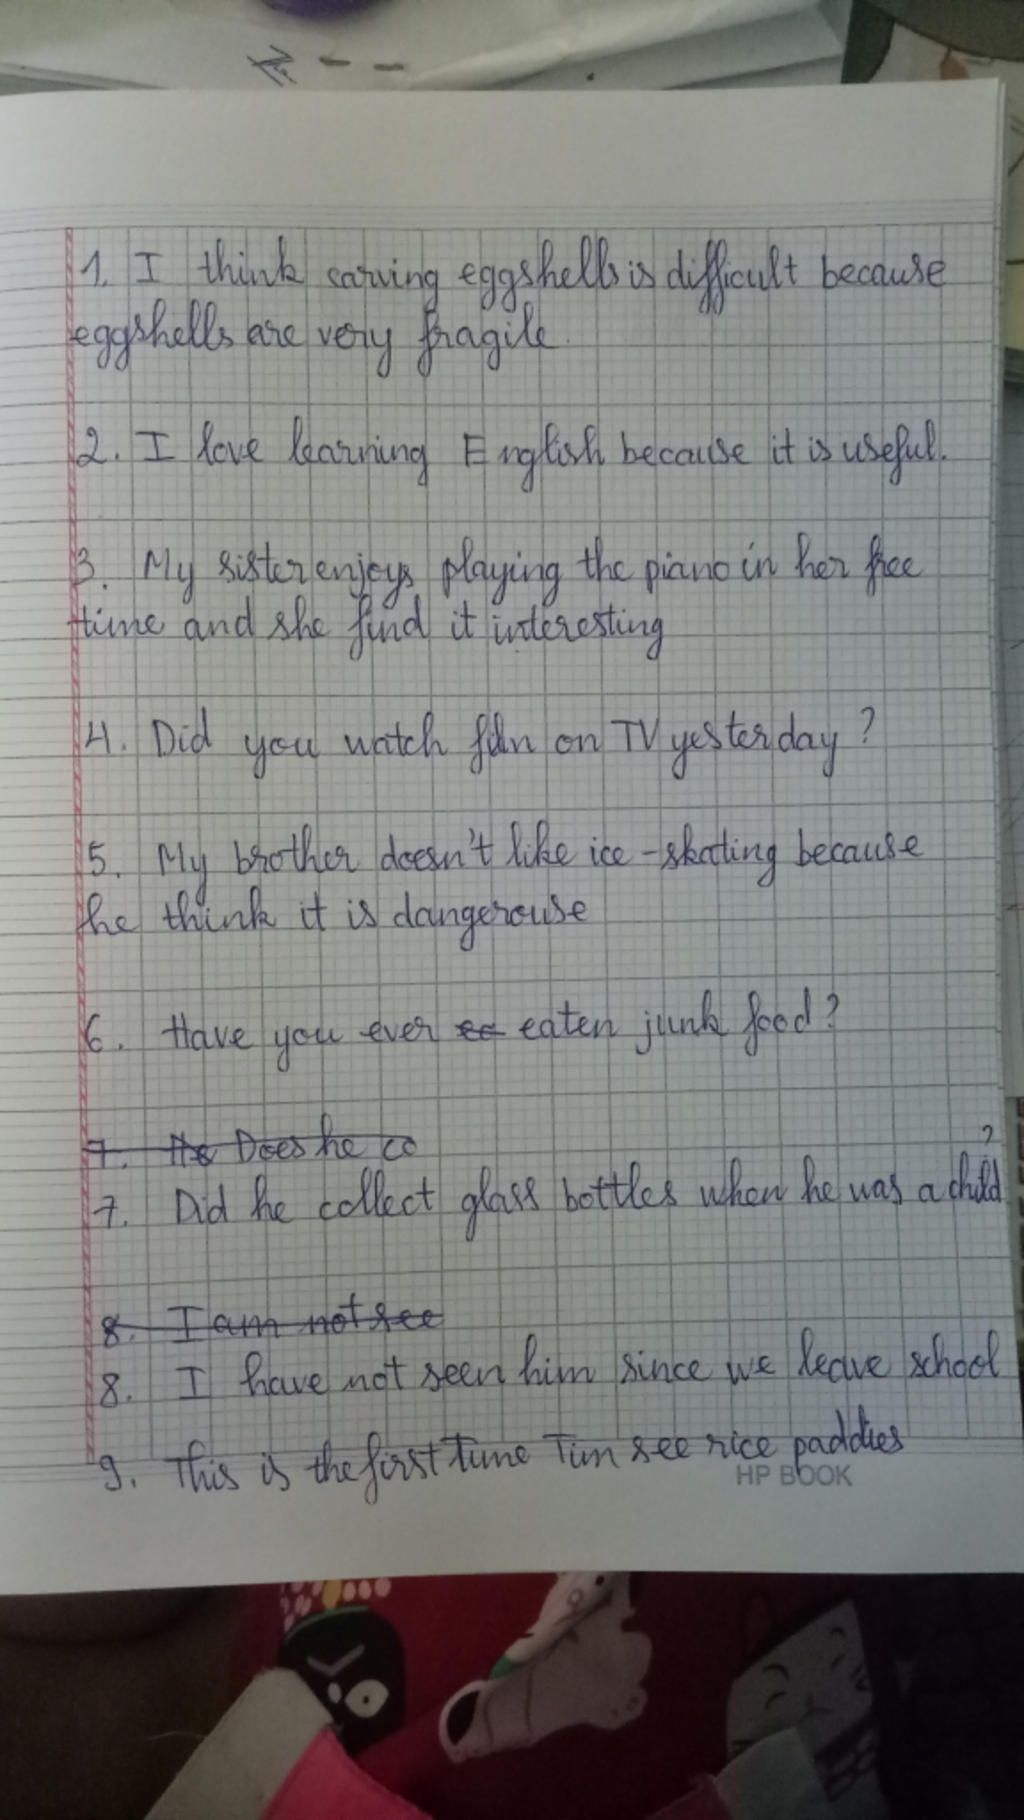 1. I think carving eggshells is difficult because
eggshells are very fragile.
2. I love learning English because it is useful.
3. My sister enjoys playing the piano in her free
time and she find it interesting
4. Did you watch on TV yesterday?
5. My brother doesn't like ice-skating because
he think it is dangerouse
6. Have you ever eaten junk food?
7. He Does he co
7. Did he collect glass bottles when he was a child?
8. I am not see
8. I have not seen him since we leave school
9. This is the first time Tim see rice paddies
HP BOOK